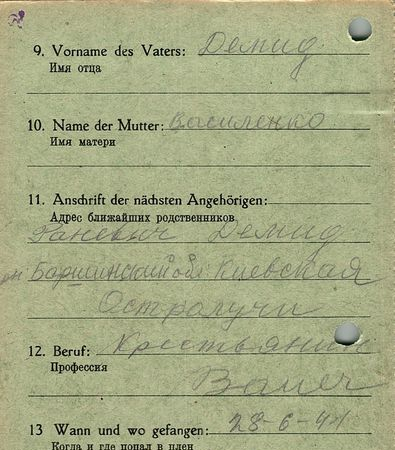 9. Vorname des Vaters: Демид
Имя отца
10. Name der Mutter: Василенко
Имя матери
11. Anschrift der nächsten Angehörigen:
Адрес ближайших родственников
Демид
обл Киевская
Остролучи
12. Beruf: Крестьянин
Профессия
Bauer
13 Wann und wo gefangen: 28-6-44
Когда и где попал в плен